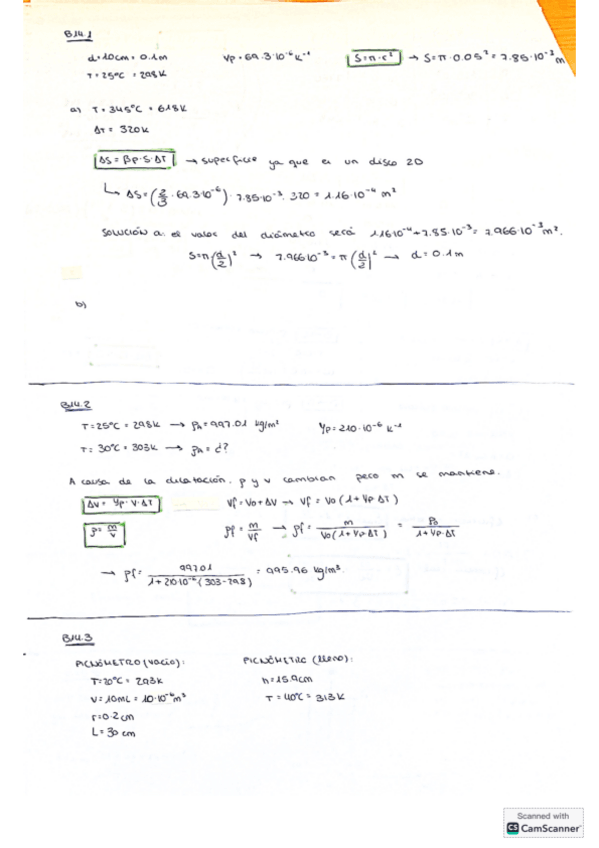 B14.1
d=10cm = 0.1m   γp = 69.3·10⁻⁶ K⁻¹   S=π·r² → S=π·0.05² = 7.85·10⁻³ m
T=25ºC = 298K
a) T=345ºC = 618K
ΔT = 320K
ΔS = βp·S·ΔT → superficie ya que es un disco 2D
↳ ΔS = (2/3 · 69.3·10⁻⁶) · 7.85·10⁻³ · 320 = 1.16·10⁻⁴ m²
SOLUCIÓN a: el valor del diámetro será 1.16·10⁻⁴ + 7.85·10⁻³ = 7.966·10⁻³ m².
S=π(d/2)² → 7.966·10⁻³ = π(d/2)² → d = 0.1m
b)
B14.2
T=25ºC = 298K → ρA = 997.01 kg/m³   γp = 210·10⁻⁶ K⁻¹
T= 30ºC = 303K → ρA = ¿?
A causa de la dilatación, ρ y v cambian pero m se mantiene.
ΔV = γp·V·ΔT   Vf = Vo + ΔV → Vf = Vo (1+γp·ΔT)
ρ = m/V   ρf = m/Vf → ρf = m/Vo(1+γp·ΔT) = ρo/1+γp·ΔT
→ ρf = 997.01/1+210·10⁻⁶(303-298) = 995.96 kg/m³.
B14.3
PICNÓMETRO (vacío):   PICNÓMETRO (lleno):
T=20ºC = 293K   h = 15.9cm
V = 10mL = 10·10⁻⁶ m³   T = 40ºC = 313K
r=0.2cm
L= 30 cm
Scanned with
CS CamScanner